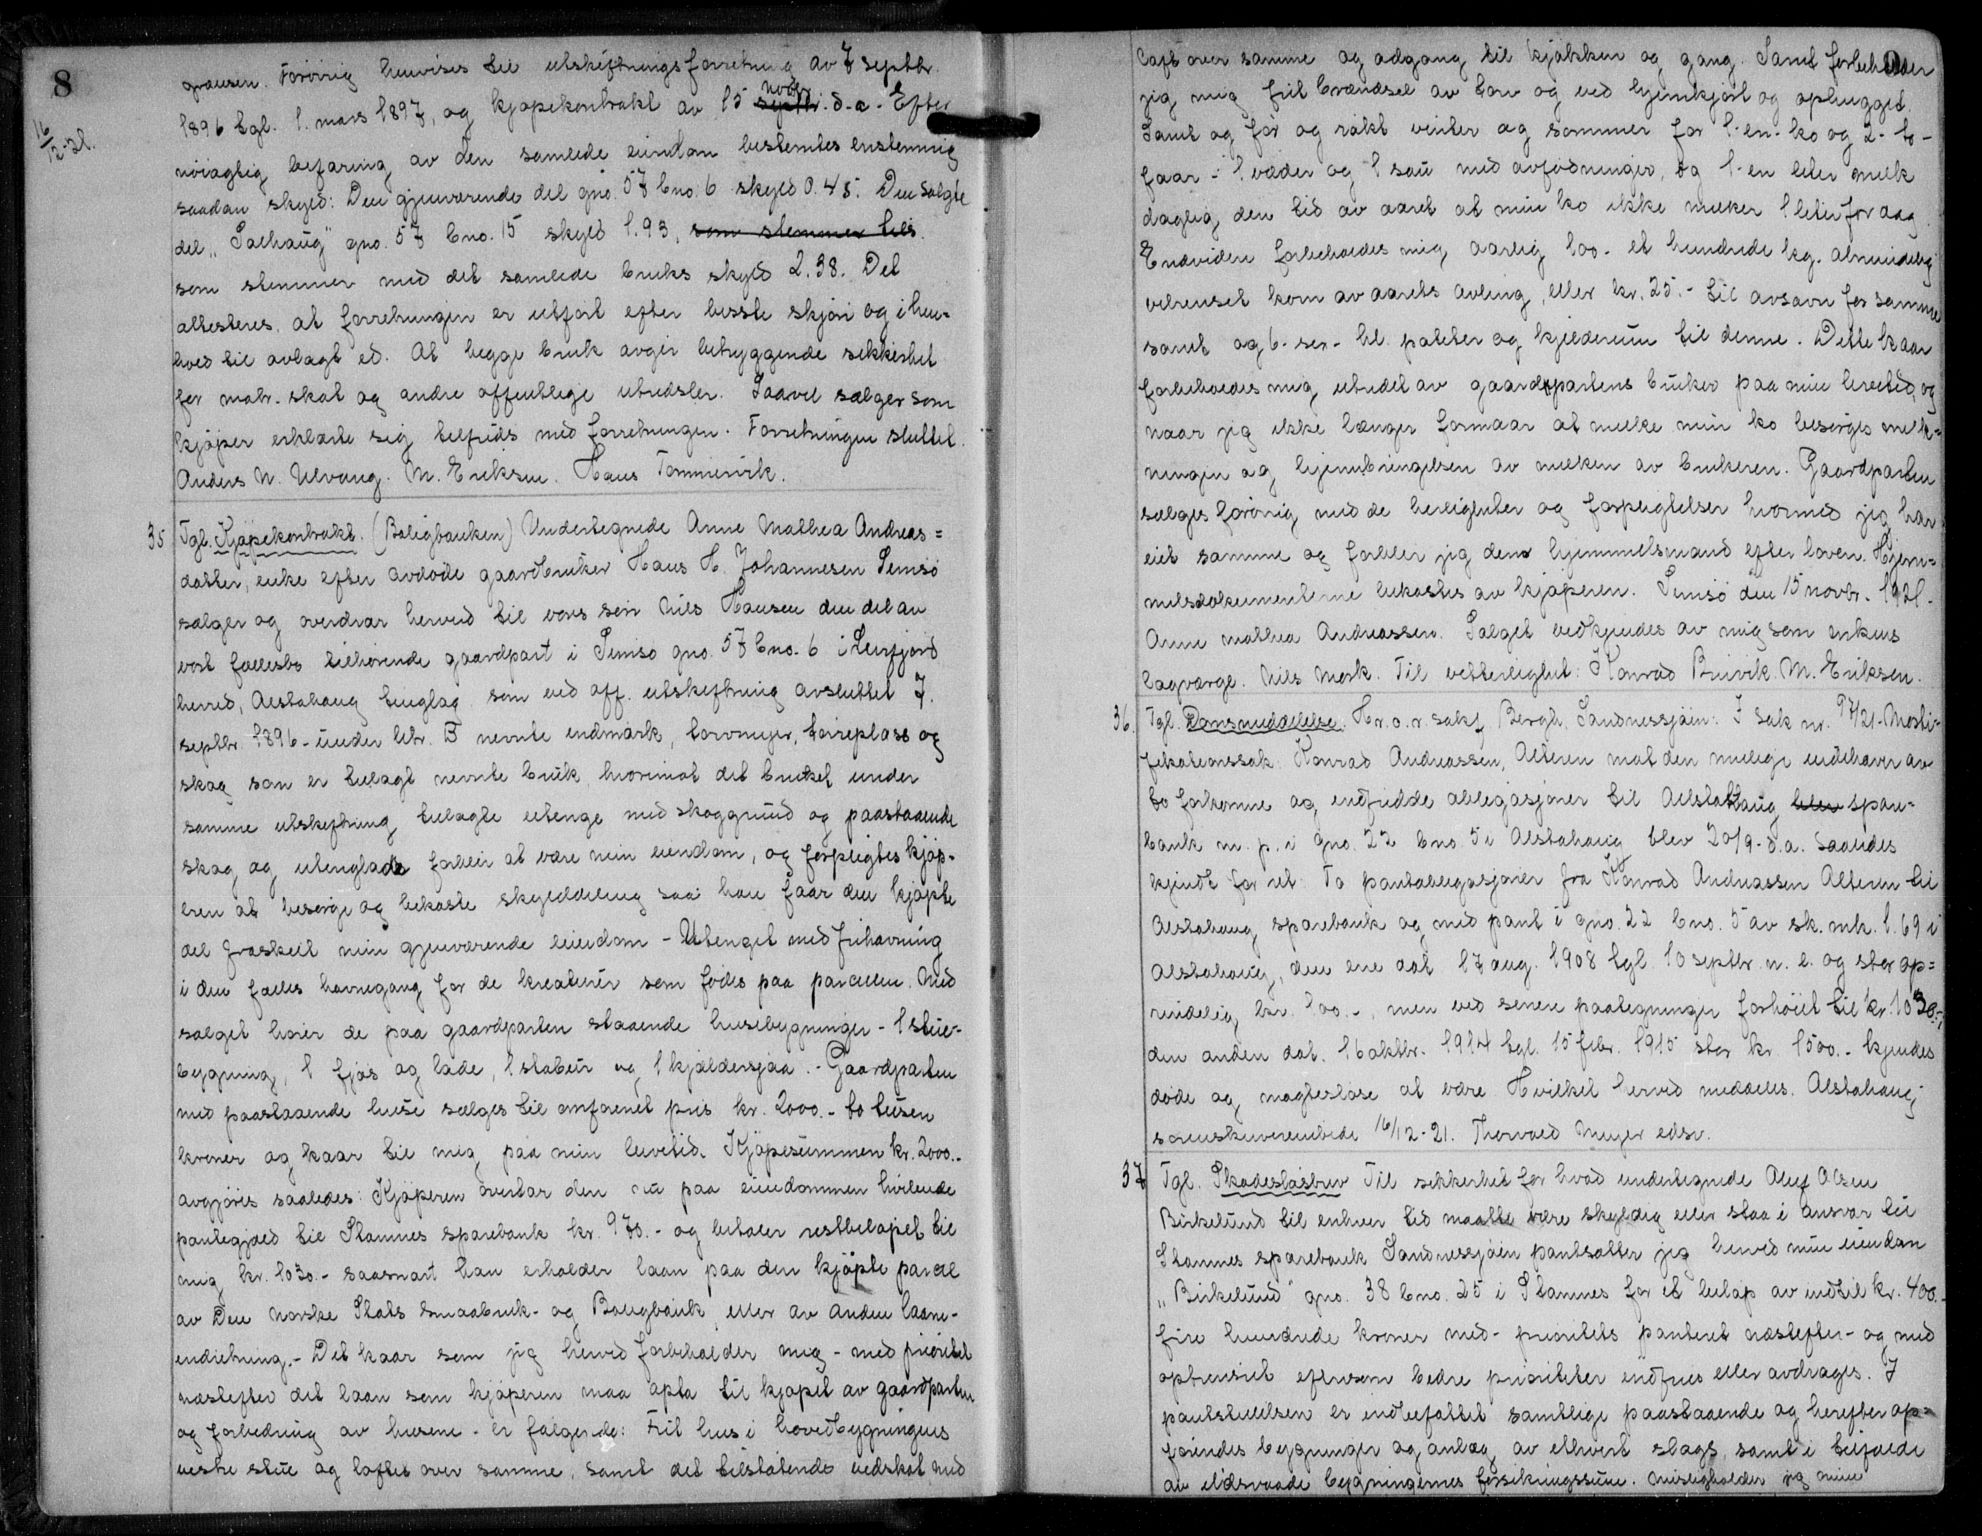 8
grænsen. Forøvrig henvises til utskiftningsforretning av 7 septbr.
1896 tgl. 1. mars 1897, og kjøpekontrakt av 15 septbr. novbr. d.a. Efter
16/12-21.
nøiagtig befaring av den samlede eiendom bestemtes enstemmig
saadan skyld: Den gjenværende del gno. 57 bno. 6 skyld 0.45. Den solgte
del „Solhaug" gno. 57 bno. 15 skyld 1.93, som stemmer
som stemmer med det samlede bruks skyld 2.38. Det
attesteres at forretningen er utført efter bedste skjøn og i hen-
hold til avlagt ed. At begge bruk avgir betryggende sikkerhet
for matr. skat og andre offentlige utredsler. Saavel sælger som
kjøper erklærte sig tilfreds med forretningen. Forretningen sluttet.
Anders N. Ulvang. M. Eriksen. Hans Tommervik.
35 Tgl. Kjøpekontrakt. (Boligbanken) Undertegnede Anne Mathea Andreas=
datter, enke efter avdøde gaardbruker Hans H. Johannesen Semsø
sælger og overdrar herved til vors søn Nils Hansen den del av
vort fællesbo tilhørende gaardpart i Semsø gno. 57 bno. 6 i Leirfjord
herred, Alstahaug tinglag som ved off. utskiftning avsluttet 7.
septbr. 1896 - under litr. B nevnte indmark, torvmyr, tørreplass og
skog som er tillagt nevnte bruk, hvorimot det bruket under
samme utskiftning tillagte utenge med skoggrund og paastaaende
skog og utenglade forblir at være min eiendom, og forpligtes kjøp-
eren at besørge og bekoste skylddeling saa han faar den kjøpte
del fraskilt min gjenværende eiendom - Utenget med frihavning
i den fælles havnegang for de kreaturer som fødes paa parcellen. Med
salget hører de paa gaardparten staaende husebygninger - 1 stue-
bygning, 1 fjøs og lade, 1 stabur og 1 kjældersjaa. - Gaardparten
med paastaaende huse sælges til omforenet pris kr. 2000.- to tusen
kroner og kaar til mig paa min levetid. Kjøpesummen kr. 2000.-
avgjøres saaledes: Kjøperen overtar den nu paa eiendommen hvilende
pantegjæld til Stamnes sparebank kr. 970.- og betaler restbeløpet til
mig kr. 1030.- saasnart han erholder laan paa den kjøpte parcel
av Den Norske Stats Smaabruk- og Boligbank eller av anden laane-
indretning.- Det kaar som jeg herved forbeholder mig - med prioritet
næstefter det laan som kjøperen maa opta til kjøpet av gaardparten
og forbedring av husene - er følgende: Frit hus i hovedbygningens
vestre stue og loftet over samme, samt det tilstøtende vedskot med
9
loft over samme og adgang til kjøkken og gang. Samt forbeholder
jeg mig frit brændsel av torv og ved hjemkjørt og ophugget.
Samt og før og røkt vinter og sommer for 1-en-ko og 2-to-
faar - 1 væder og 1 sau med avfødninger, og 1-en liter melk
daglig den tid av aaret at min ko ikke melker 1 liter for dag.
Endvidere forbeholdes mig aarlig 100.- et hundrede kg. almindelig
velrenset korn av aarets avling, eller kr. 25.- til avsavn for samme
samt og 6-sex- hl. poteter og kjelderrum til denne. Dette kaar
forbeholdes mig utredet av gaardpartens bruker paa min levetid, og
naar jeg ikke længer formaar at melke min ko besørges melk=
ningen og hjembringelsen av melken av brukeren. Gaardparten
sælges forøvrig med de herligheter og forpligtelser hvormed jeg har
eiet samme og forblir jeg dens hjemmelsmand efter loven. Hjem=
melsdokumenterne bekostes av kjøperen. Semsø den 15 novbr. 1921.
Anne Mathea Andreassen. Salget vedkjendes av mig som enkens
lagværge. Nils Mork. Til vitterlighet: Konrad Breivik. M. Eriksen.
36. Tgl. Domsmeddelelse. Hr. o.r.sakf. Bergh, Sandnessjøen: I sak nr. 97/21 - Morti-
fikationssak: Konrad Andreassen, Alteren mot den mulige indehaver av
to forkomne og indfridde obligasjoner til Alstahaug spare-
bank m. p. i gno. 22 bno. 5 i Alstahaug blev 20/9-d.a. saaledes
kjendt for ret: To pantobligasjoner fra Konrad Andreassen Alteren til
Alstahaug sparebank og med pant i gno. 22 bno. 5 av sk. mrk. 1.69 i
Alstahaug, den ene dat. 17 aug. 1908 tgl. 10 septbr. n. e. og stor op=
rindelig kr. 900.-, men ved senere paategninger forhøiet til kr. 1030.-,
den anden dat. 16 oktbr. 1914 tgl. 15 febr. 1915 stor kr. 1500.- kjendes
døde og magtesløse at være. Hvilket herved meddeles. Alstahaug
sorenskriverembede 16/12-21. Thorvald Meyer edsv.
37 Tgl. Skadesløsbrev Til sikkerhet for hvad undertegnede Aluf Olsen
Birkelund til enhver tid maatte være skyldig eller staa i ansvar til
Stamnes sparebank Sandnessjøen pantsætter jeg herved min eiendom
„Birkelund" gno. 38 bno. 25 i Stamnes for et beløp av indtil kr. 400.-
fire hundrede kroner med - prioritets panteret næstefter - og med
oprykningsret eftersom bedre prioriteter indfries eller avdrages. I
pantstillelsen er indbefattet samtlige paastaaende og herefter op=
førendes bygninger og anlæg av ethvert slags, samt i tilfælde
av ildsvaade bygningernes forsikringssum. Misligholder jeg mine